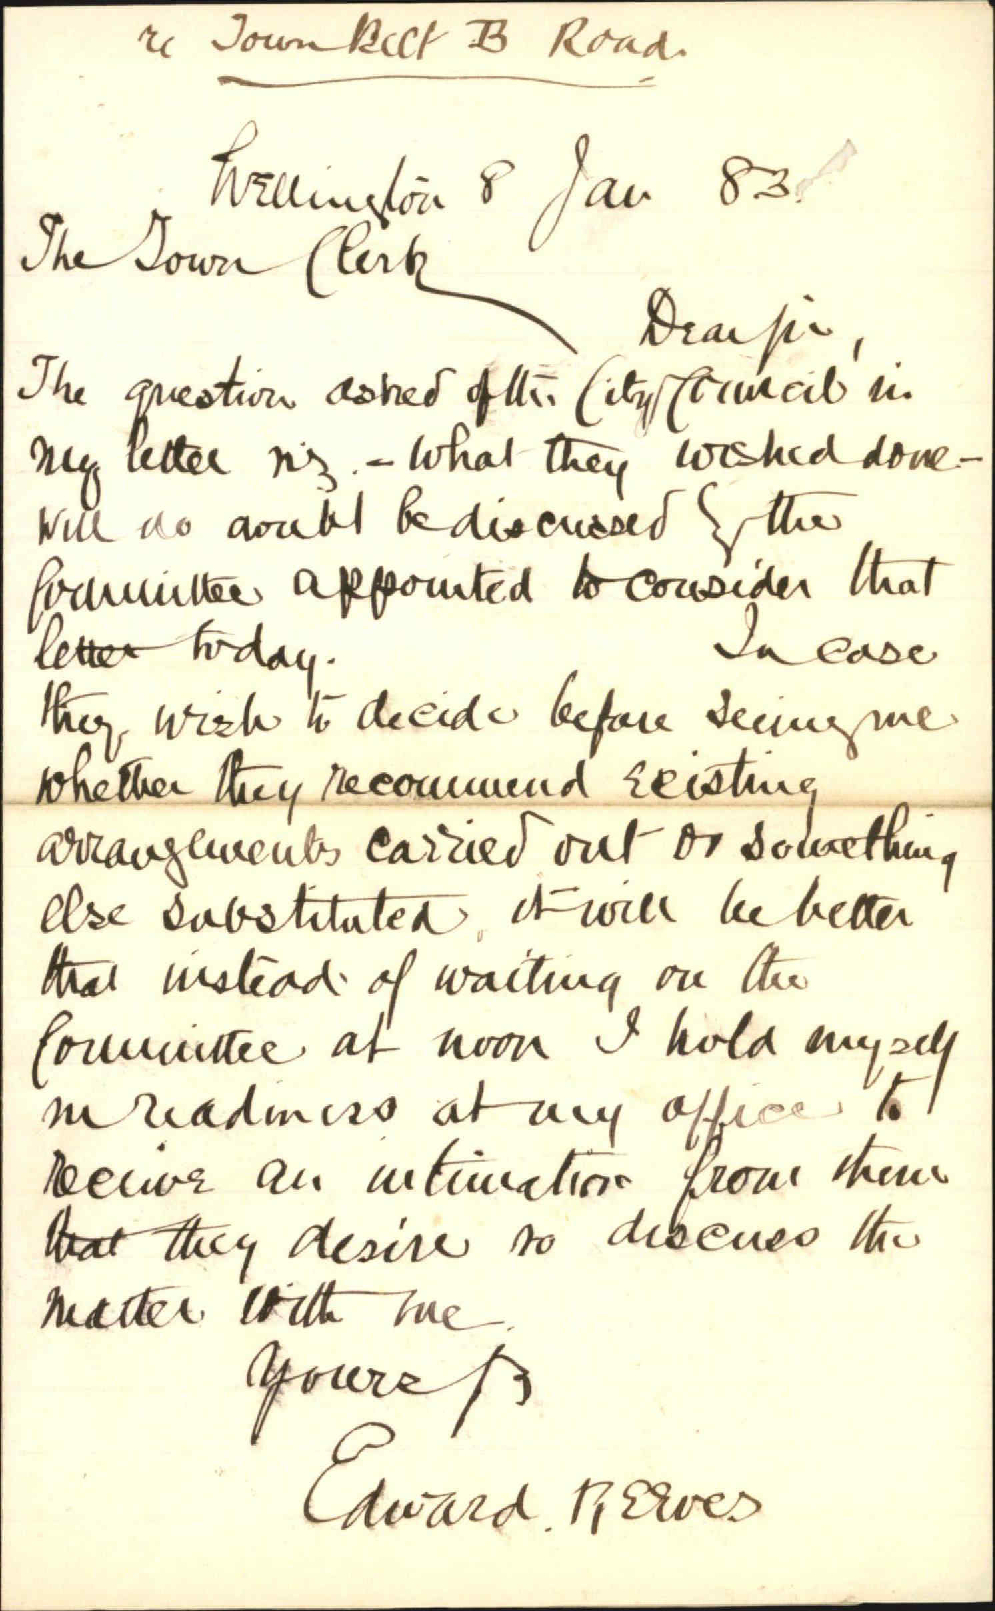 re Town Belt B Road.
Wellington 8 Jan 83.
The Town Clerk
Dear Sir,
The question asked of the City Council in
my letter viz. - what they wished done -
will no doubt be discussed by the
Committee appointed to consider that
letter today. In case
they wish to decide before seeing me
whether they recommend existing
arrangements carried out or something
else substituted, it will be better
that instead of waiting on the
Committee at noon I hold myself
in readiness at my office to
receive an intimation from them
that they desire to discuss the
matter with me.
Yours
Edward Reeves